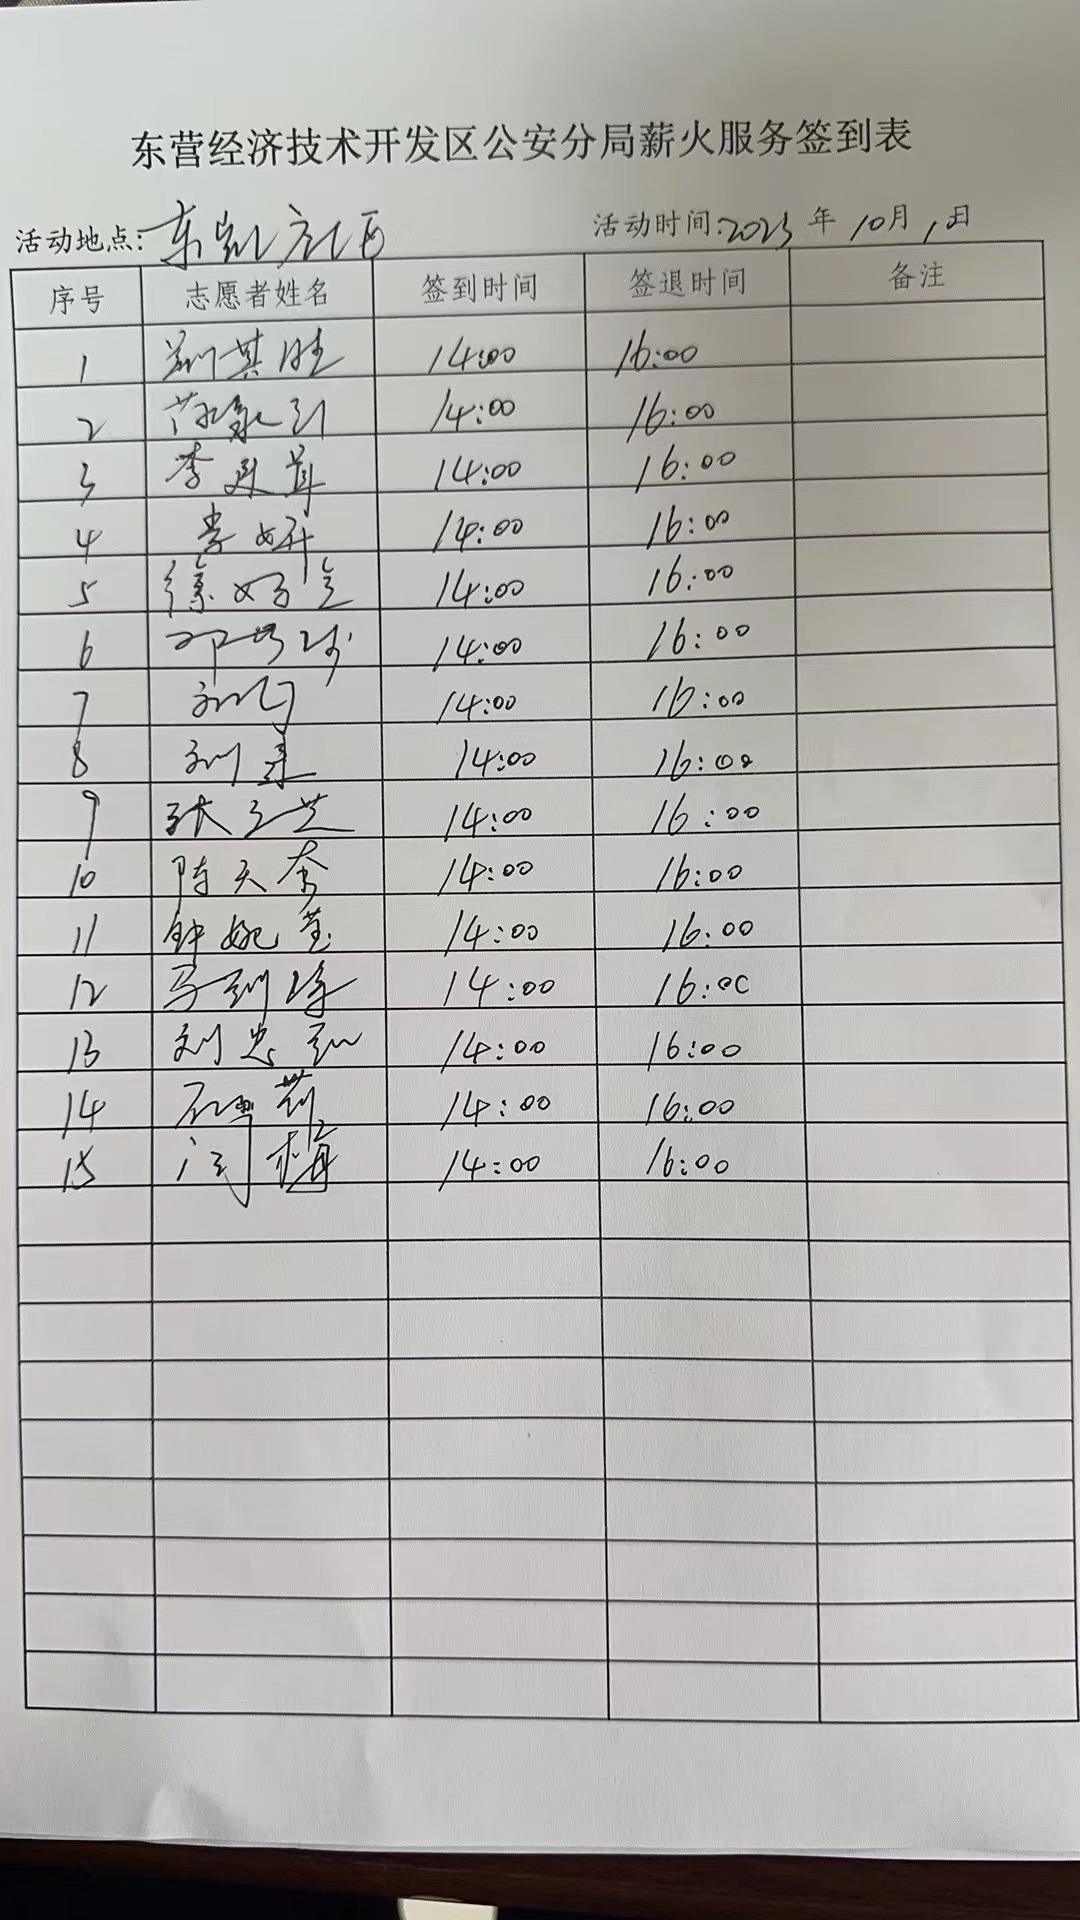 东营经济技术开发区公安分局薪火服务签到表
活动地点:东凯社区 活动时间:2023年10月1日
序号 志愿者姓名 签到时间 签退时间 备注
1 14:00 16:00
2 14:00 16:00
3 李 14:00 16:00
4 李妍 14:00 16:00
5 徐好 14:00 16:00
6 邓 14:00 16:00
7 刘 14:00 16:00
8 刘 14:00 16:00
9 张 14:00 16:00
10 陈天 14:00 16:00
11 钟婉莹 14:00 16:00
12 马 14:00 16:00
13 刘忠 14:00 16:00
14 14:00 16:00
15 闫梅 14:00 16:00